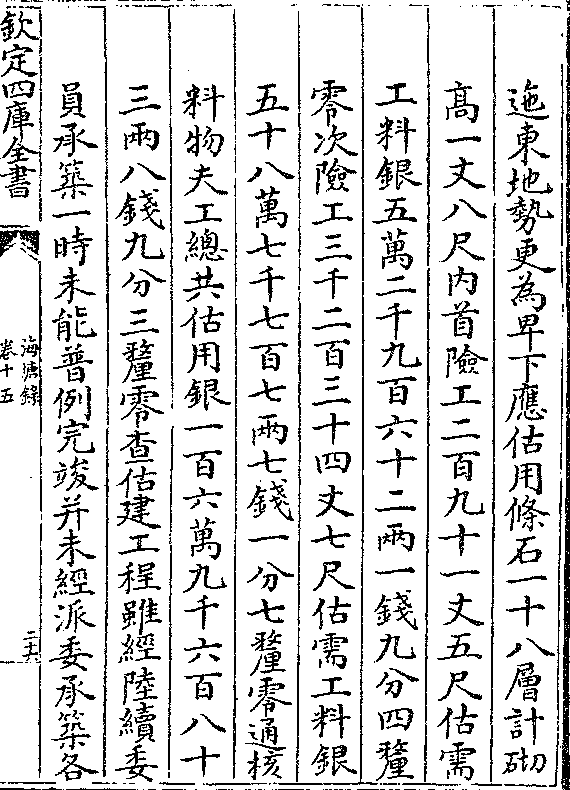 迤東地勢更為卑下應估用條石一十八層計砌
高一丈八尺内首險工二百九十一丈五尺估需
工料銀五萬二千九百六十二兩一錢九分四釐
零次險工三千二百三十四丈七尺估需工料銀
五十八萬七千七百七兩七錢一分七釐零通核
料物夫工總共估用銀一百六萬九千六百八十
三兩八錢九分三釐零查估建工程雖經陸續委
員承築一時未能普例完竣并未經派委承築各
欽定四庫全書
海塘錄
卷十五
二十六